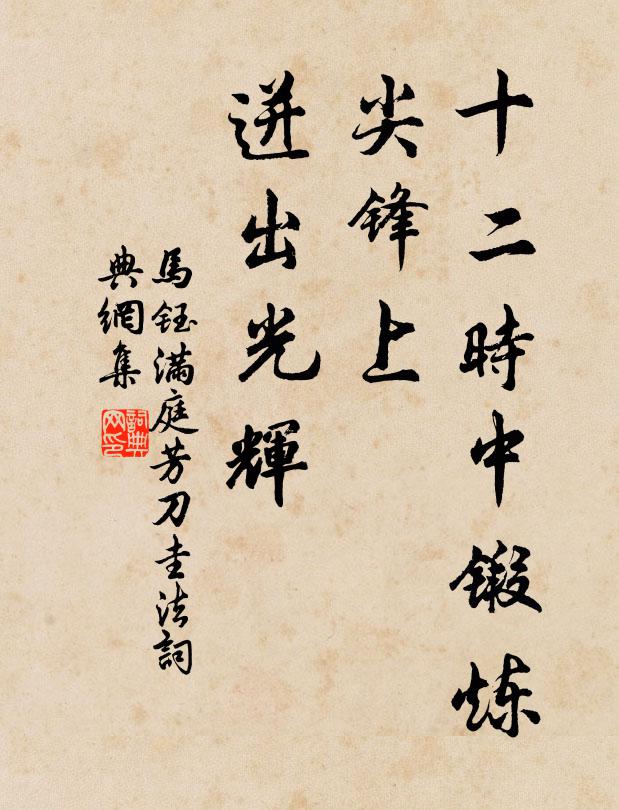 十二時中鍛炼
尖鋒上
迸出光輝
馬鈺滿庭芳刀圭法詞
典網集
詞典网印